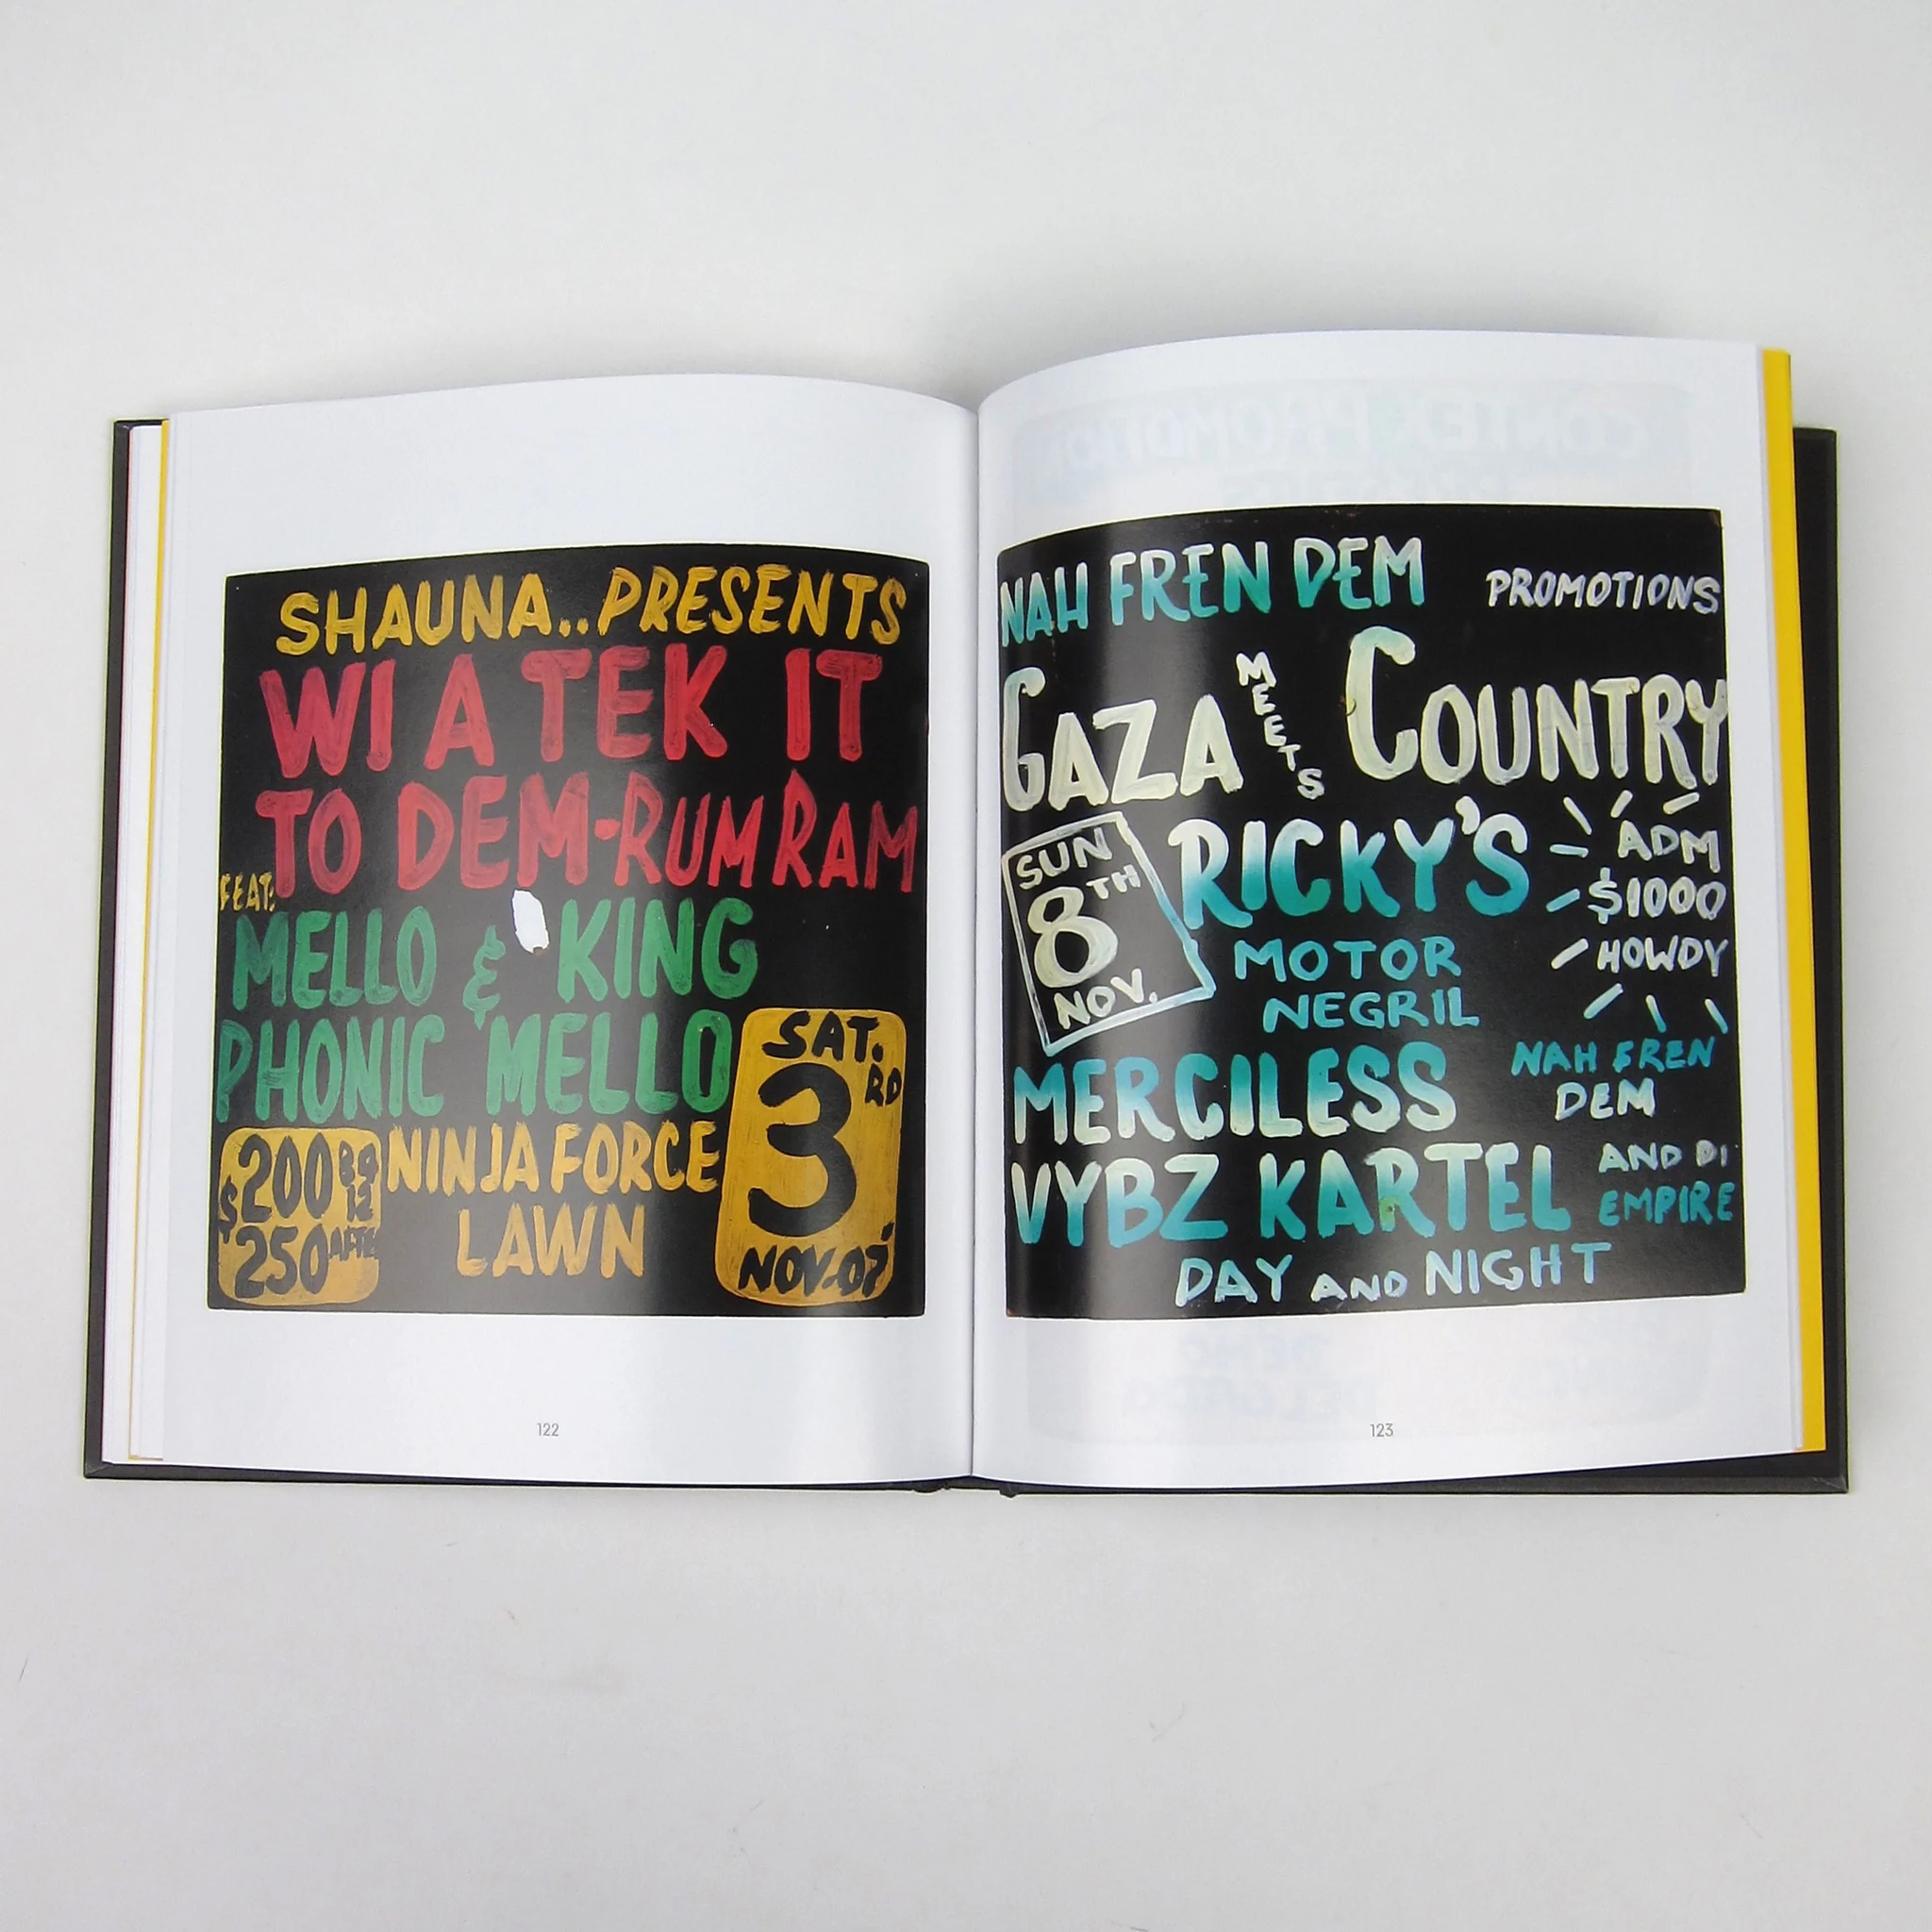 SHAUNA..PRESENTS
WI A TEK IT
TO DEM-RUM RAM
FEAT.
MELLO & KING
PHONIC MELLO
$200 B4 12
250 AFTER
NINJA FORCE
LAWN
SAT.
3RD
NOV.07'
122
NAH FREN DEM PROMOTIONS
GAZA MEETS COUNTRY
SUN
8TH
NOV.
RICKY'S
MOTOR
NEGRIL
ADM
$1000
HOWDY
NAH FREN
DEM
MERCILESS
VYBZ KARTEL
AND DI
EMPIRE
DAY AND NIGHT
123
CONTEX PROMOTION